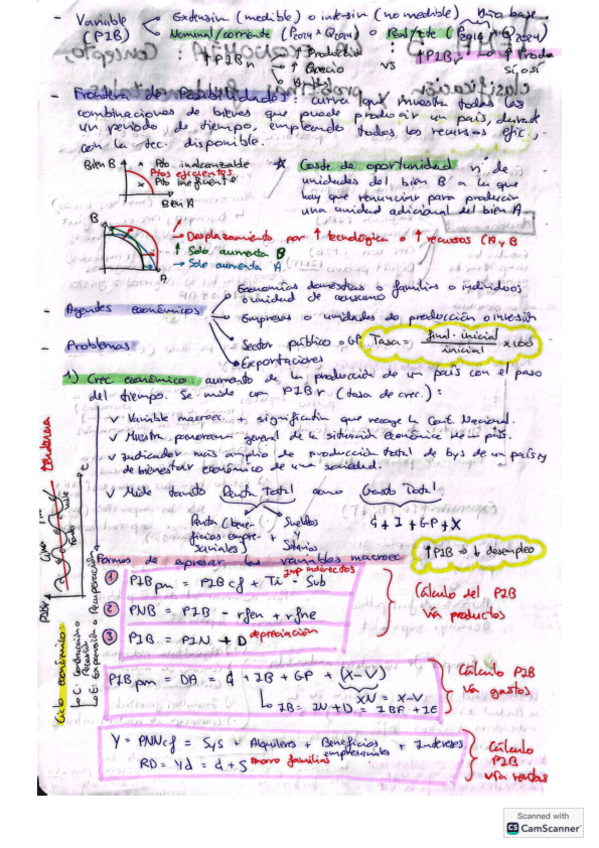 - Variable (PIB)
Extensión (medible) o intensión (no medible)
Año base
Nominal/corriente (P2024 × Q2024) o Real/cte (P2014 × Q2024)
↑PIBn
↑ Producción
↑ Precio
↑ Ambos
vs
↑PIBr → ↑ Produ
sí, o sí
- Frontera de Posibilidades: curva que muestra todas las
combinaciones de bienes que puede producir un país, durante
un periodo de tiempo, empleando todos los recursos efic.,
con la tec. disponible.
Bien B
× Pto inalcanzable
Ptos eficientes
× Pto ineficiente
Bien A
☆ Coste de oportunidad: nº de
unidades del bien B a la que
hay que renunciar para producir
una unidad adicional del bien A
B
A
→ Desplazamiento por ↑ tecnológica o ↑ recursos (A y B
↑ Solo aumenta B
→ Solo aumenta A
- Agentes económicos
Economías domésticas o familias o individuos
o unidad de consumo
Empresas o unidades de producción o inversión
Sector público = GP
Exportaciones
Tasa = final - inicial / inicial × 100
- Problemas
1) Crec. económico: aumento de la producción de un país con el paso
del tiempo. Se mide con PIBr (tasa de crec.):
✓ Variable macroec. + significativa que recoge la Cont. Nacional.
✓ Muestra panorama general de la situación económica de un país.
✓ Indicador más amplio de producción total de bys de un país y
de bienestar económico de una sociedad.
✓ Mide tanto Renta Total como Gasto Total
Renta (beneficios empresariales) + Sueldos y Salarios
G + I + GP + X
↑PIB → ↓ desempleo
Tendencia
PIBr
Cima
Valle
Ciclo económico:
C: Contracción o Recesión
E: Expansión o Recuperación
Formas de expresar las variables macroec
① PIBpm = PIBcf + Ti - Sub
Imp indirectos
② PNB = PIB - rfen + rfne
③ PIB = PIN + D depreciación
Cálculo del PIB
vía productos
PIBpm = DA = G + IB + GP + (X-V)
XN = X-V
IB = IN + D = IBF + IE
Cálculo PIB
vía gastos
Y = PNNcf = SyS + Alquileres + Beneficios empresariales + Intereses
RD = Yd = G + S ahorro familias
Cálculo
PIB
vía rentas
Scanned with
CS CamScanner